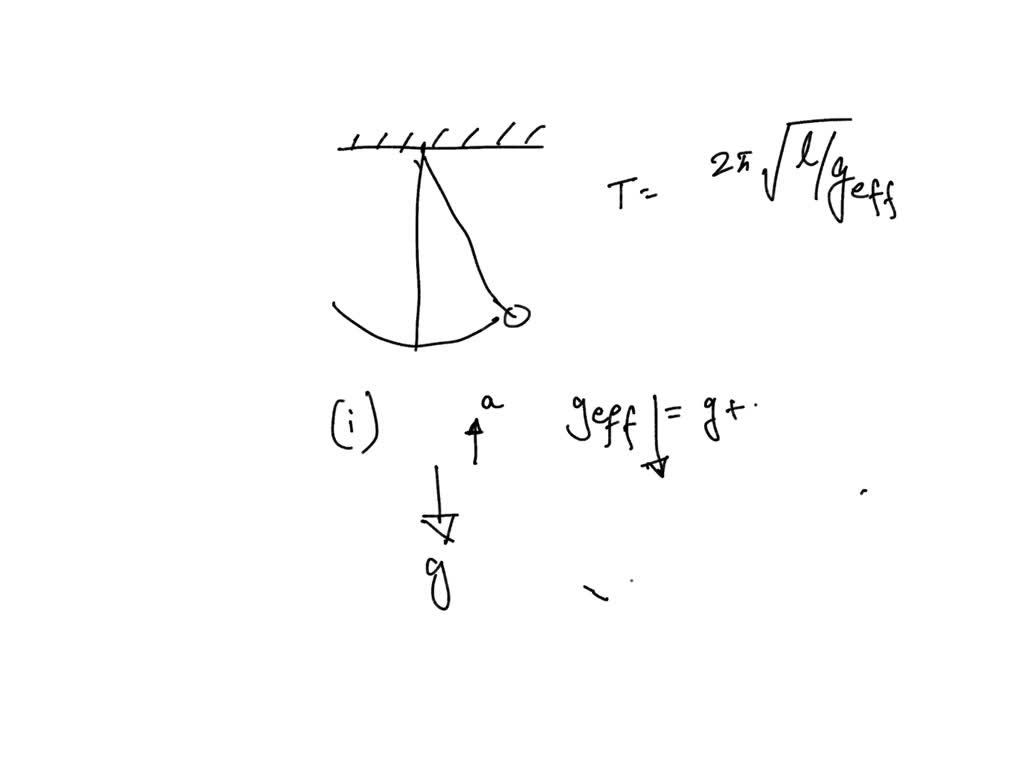 T = 2π√l/geff
(i) a geff↓ = g+
g